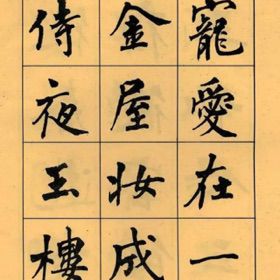 寵愛在一
金屋妆成
侍夜玉樓